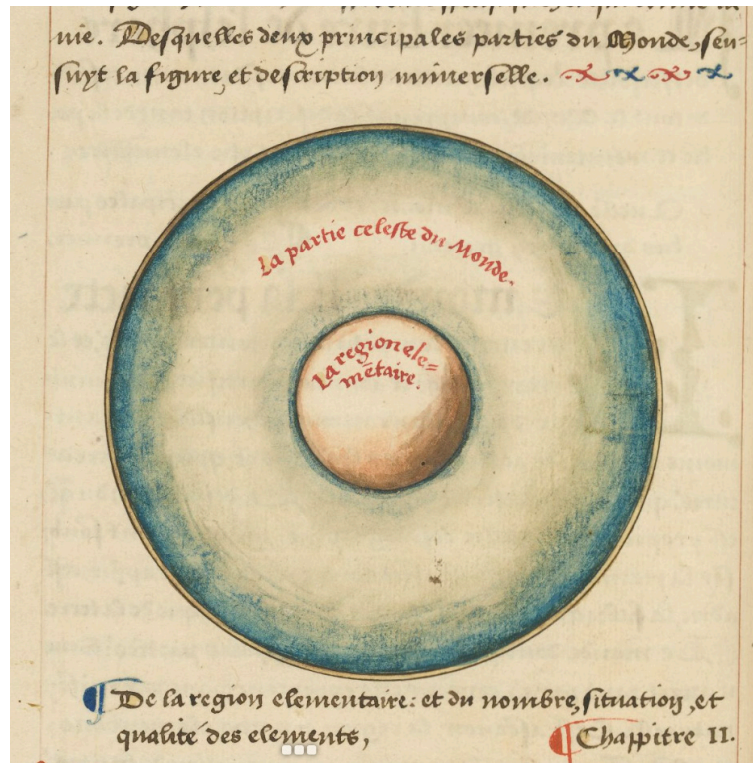 nie. Desquelles deux principales parties du Monde, sen=
suyt la figure, et description universelle.
La partie celeste du Monde.
La region ele=
mētaire.
De la region elementaire: et du nombre, situation, et
qualité des elements,
Chappitre II.